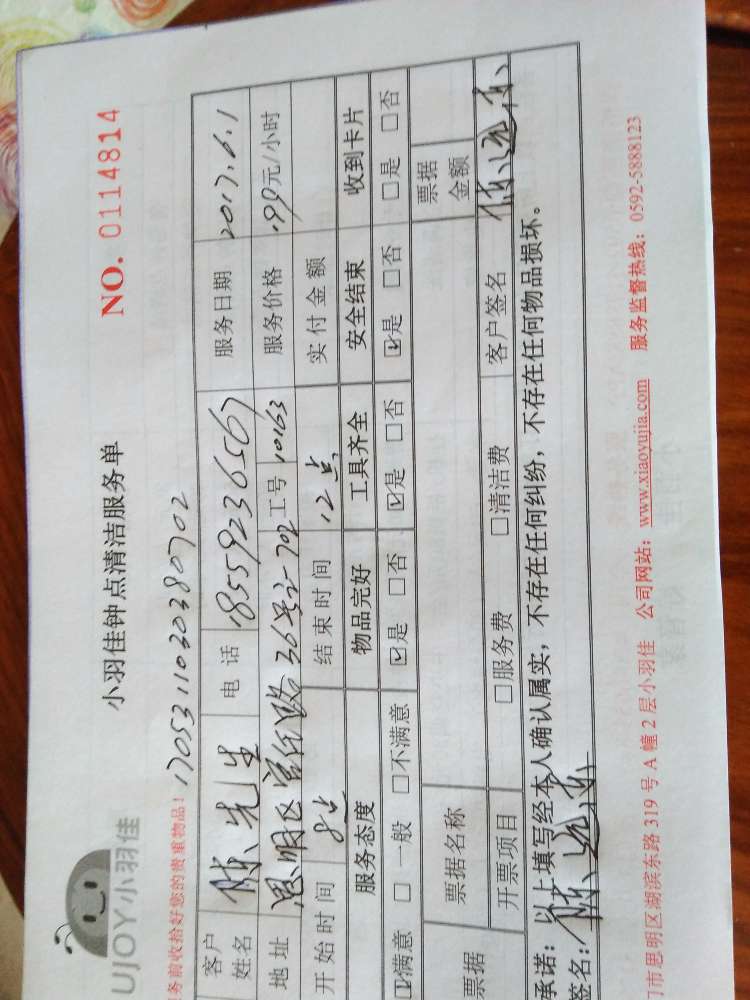 UJOY小羽佳
小羽佳钟点清洁服务单
NO. 0114814
务前收拾好您的贵重物品! 17053110203380702
客户姓名 陈先生 电话 18559236567 服务日期 2017.6.1
地址 思明区 路36号2-702 工号 10163 服务价格 199元/小时
开始时间 8点 结束时间 12点 实付金额
服务态度 物品完好 工具齐全 安全结束 收到卡片
☑满意 □一般 □不满意 ☑是 □否 ☑是 □否 ☑是 □否 □是 □否
票据 票据名称 票据金额
开票项目 □服务费 □清洁费 客户签名
承诺:以上填写经本人确认属实,不存在任何纠纷,不存在任何物品损坏。
签名:
门市思明区湖滨东路 319 号 A 幢 2 层小羽佳 公司网站:www.xiaoyujia.com 服务监督热线:0592-5888123